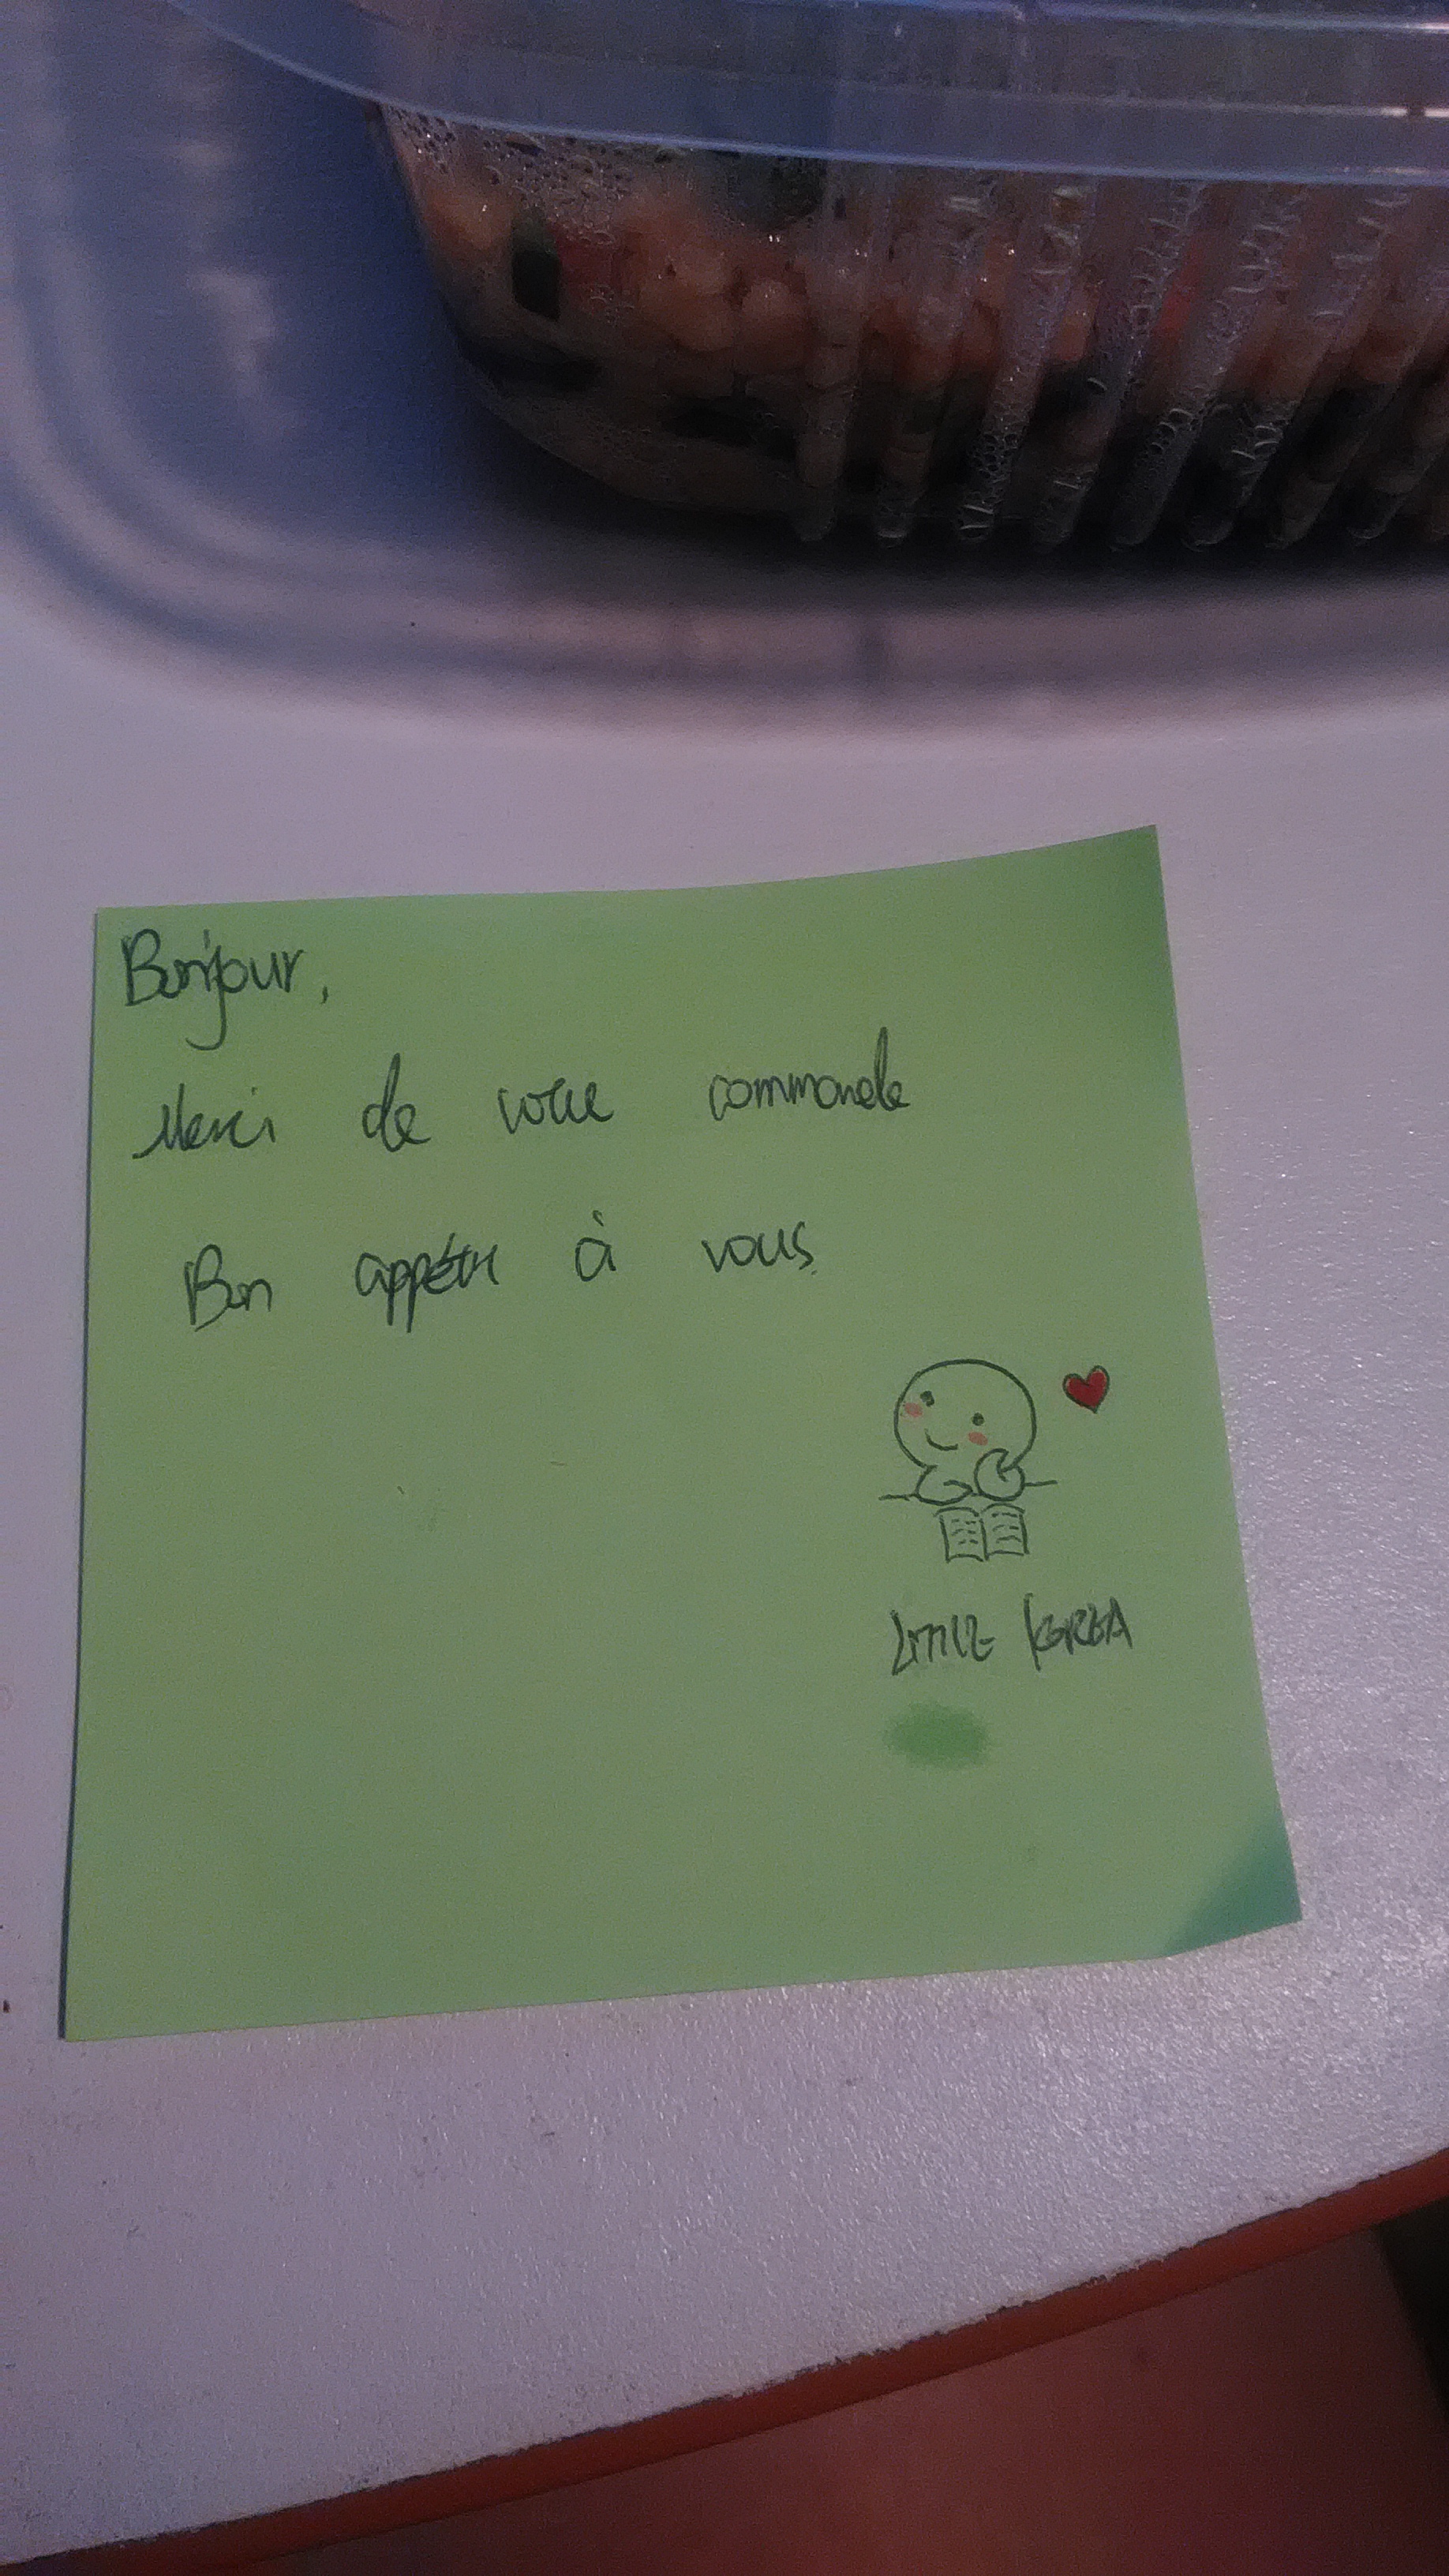 Bonjour,
Merci de votre commande
Bon appétit à vous
LITTLE KOREA